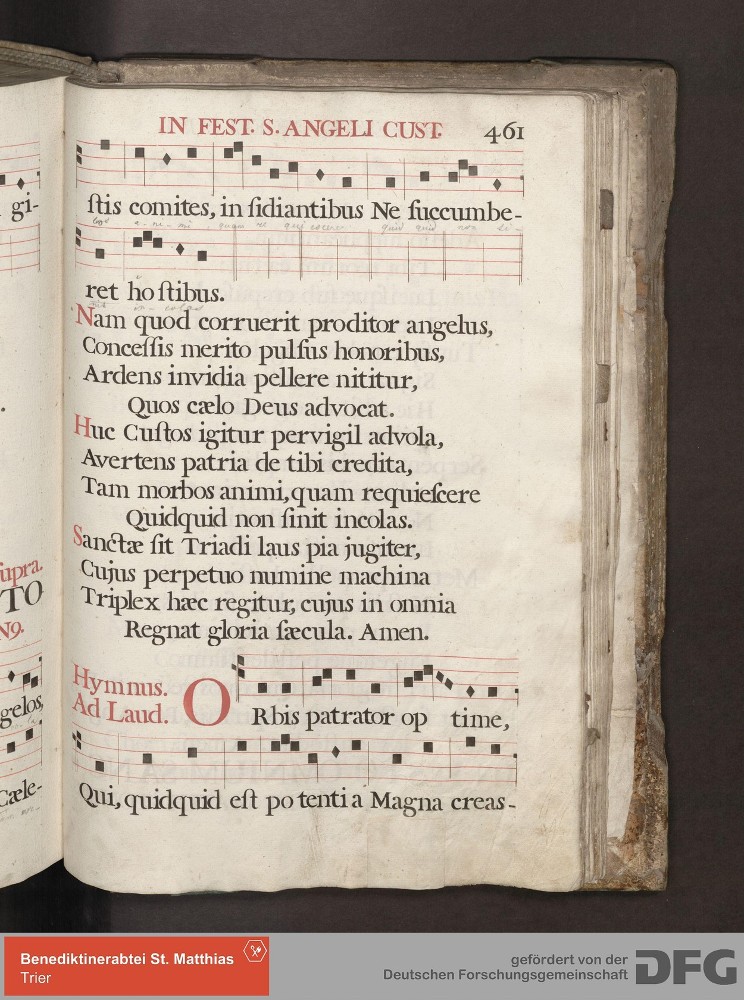 IN FEST. S. ANGELI CUST. 461
gi-
ſtis comites, in ſidiantibus Ne ſuccumbe-
ret ho ſtibus.
Nam quod corruerit proditor angelus,
Conceſſis merito pulſus honoribus,
Ardens invidia pellere nititur,
Quos cælo Deus advocat.
Huc Cuſtos igitur pervigil advola,
Avertens patria de tibi credita,
Tam morbos animi, quam requieſcere
Quidquid non ſinit incolas.
Sanctæ ſit Triadi laus pia jugiter,
Cujus perpetuo numine machina
Triplex hæc regitur, cujus in omnia
Regnat gloria ſæcula. Amen.
supra.
TO
N9.
Hymnus.
Ad Laud.
ORbis patrator op time,
gelos,
Qui, quidquid eſt po tenti a Magna creas-
Cæle-
Benediktinerabtei St. Matthias
Trier
gefördert von der
Deutschen Forschungsgemeinschaft
DFG